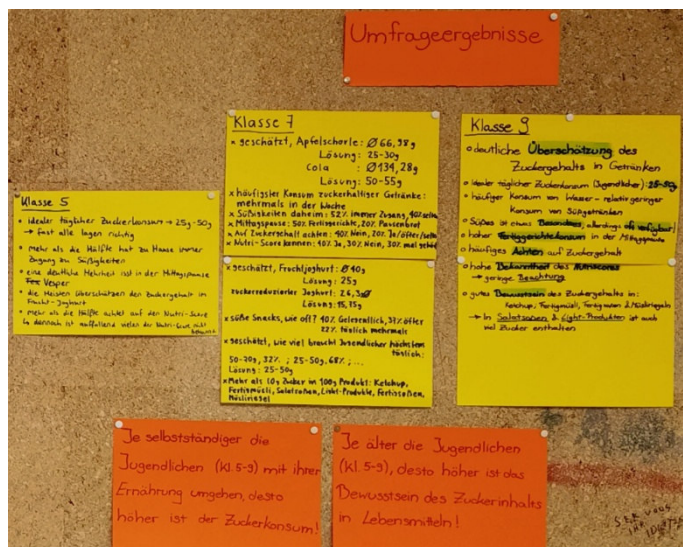 Umfrageergebnisse
Klasse 5
• idealer täglicher Zuckerkonsum → 25g-50g
→ fast alle lagen richtig
• mehr als die Hälfte hat zu Hause immer
Zugang zu Süßigkeiten
• eine deutliche Mehrheit isst in der Mittagspause
Vesper
• die meisten überschätzen den Zuckergehalt im
Frucht-Joghurt
• mehr als die Hälfte achtet auf den Nutri-Score
↳ dennoch ist auffallend vielen der Nutri-Score nicht
bekannt
Klasse 7
× geschätzt, Apfelschorle: Ø 66,98g
Lösung: 25-30g
Cola : Ø 134,28g
Lösung: 50-55g
× häufigster Konsum zuckerhaltiger Getränke:
mehrmals in der Woche
× Süßigkeiten daheim: 52% immer Zugang, 40%
× Mittagspause: 50% Fertiggerichte, 20% Pausenbrot
× Auf Zuckergehalt achten: 40% Nein, 20% Ja/öfter/
× Nutri-Score kennen: 40% Ja, 30% Nein, 30% mal gehört
× geschätzt, Fruchtjoghurt: Ø 40g
Lösung: 25g
zuckerreduzierter Joghurt: 26,3g
Lösung: 15,75g
× süße Snacks, wie oft? 40% Gelegentlich, 37% öfter
22% täglich mehrmals
× geschätzt, wie viel braucht Jugendlicher höchstens
täglich:
50-70g, 32% ; 25-50g, 68% ; ...
Lösung: 25-50g
× Mehr als 10g Zucker in 100g Produkt: Ketchup,
Fertigmüsli, Salatsoßen, Light-Produkte, Fertigsoßen,
Müsliriegel
Klasse 9
○ deutliche Überschätzung des
Zuckergehalts in Getränken
○ idealer täglicher Zuckerkonsum (Jugendlicher): 25-50g
○ häufiger Konsum von Wasser - relativ geringer
Konsum von Süßgetränken
○ Süßes ist etwas Besonderes, allerdings oft verfügbar!
○ hoher Fertiggerichtekonsum in der Mittagspause
○ häufiges Achten auf Zuckergehalt
○ hohe Bekanntheit des Nutriscores
→ geringe Beachtung
○ gutes Bewusstsein des Zuckergehalts in:
Ketchup, Fertigmüsli, Fertigsoßen & Müsliriegeln
→ In Salatsoßen & Light-Produkten ist auch
viel Zucker enthalten
Je selbstständiger die
Jugendlichen (Kl. 5-9) mit ihrer
Ernährung umgehen, desto
höher ist der Zuckerkonsum!
Je älter die Jugendlichen
(Kl. 5-9), desto höher ist das
Bewusstsein des Zuckerinhalts
in Lebensmitteln!